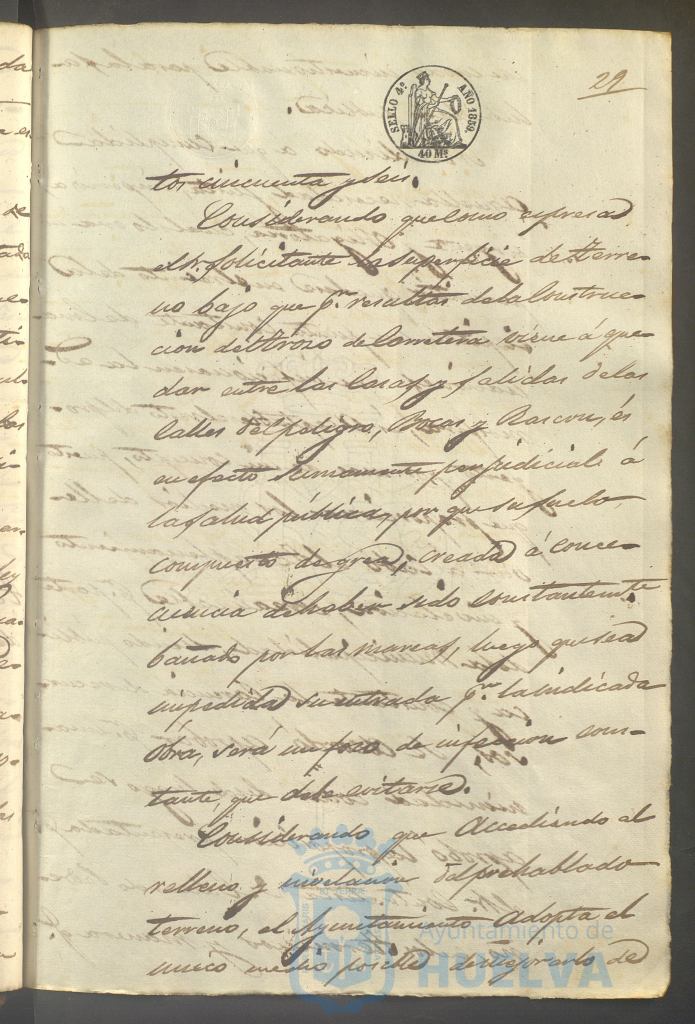 29
SELLO 4º AÑO 1859.
40 Ms
tos cincuenta y seis.
Considerando que como expresa
el Sr. solicitante la superficie de terre-
no bajo que pr. resultas de la construc-
cion del trozo de Carretera viene á que-
dar entre las Casas y salidas de las
Calles del peligro, Bocas y Rascon, és
en efecto sumamente perjudicial á
la salud pública, por que su suelo
compuesto de greda, creada á conce-
cuencia de haber sido constantemte
bañado por las mareas, luego que sea
impedida su entrada pr. la indicada
obra, será un foco de infeccion cons-
tante, que debe evitarse.
Considerando que accediendo al
relleno y nivelacion del prehablado
terreno, el Ayuntamiento adopta el
unico medio posible de
Ayuntamiento de
HUELVA